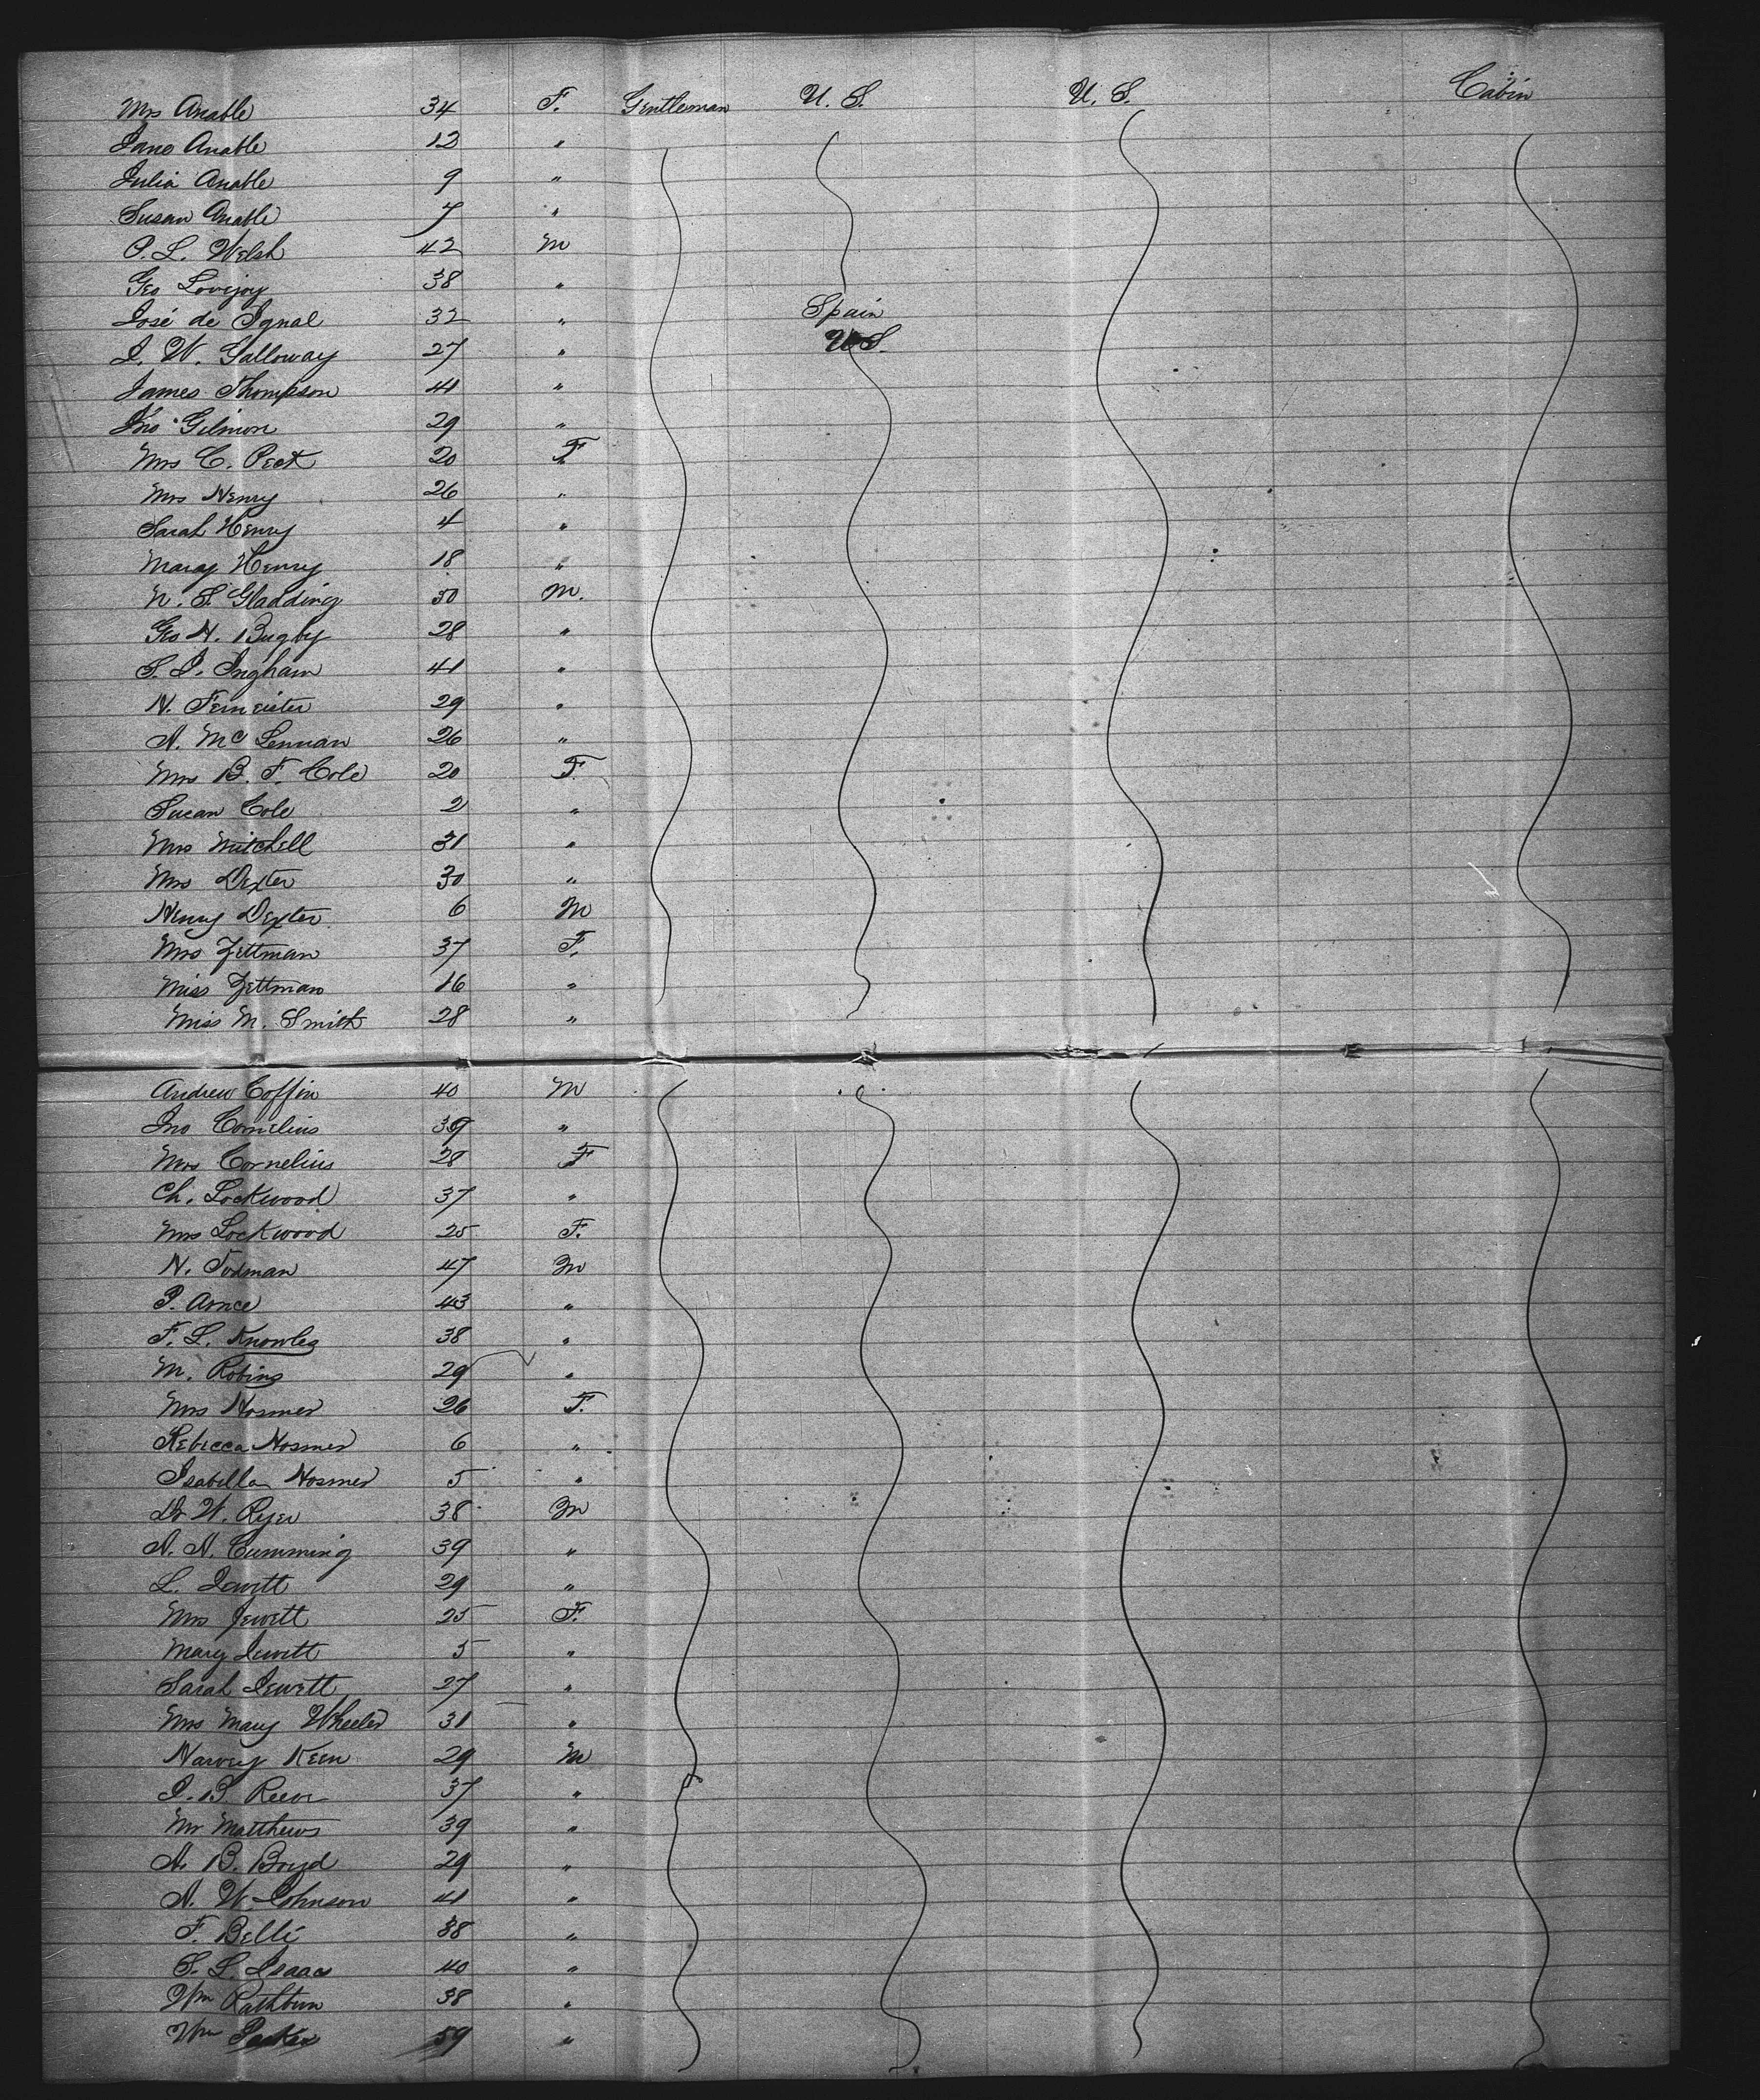 Mrs Anable 34 F. Gentleman U. S. U. S. Cabin
Jane Anable 12 "
Julia Anable 9 "
Susan Anable 7 "
P. L. Welsh 42 M
Geo Lovejoy 38 "
José de Ignal 32 " Spain
J. W. Galloway 27 " U S.
James Thompson 41 "
Jno Gilmon 29 "
Mrs C. Peck 20 F
Mrs Henry 26 "
Sarah Henry 4 "
Mary Henry 18 "
N. S. Gladding 30 M.
Geo H. Bugby 28 "
S. I. Ingham 41 "
H. Femeister 29 "
A. Mc Lennan 26 "
Mrs B. F. Cole 20 F.
Susan Cole 2 "
Mrs Mitchell 31 "
Mrs Dexter 30 "
Henry Dexter 6 M
Mrs Zettman 37 F.
Miss Zettman 16 "
Miss M. Smith 28 "
Andrew Coffin 40 M
Jno Cornelius 39 "
Mrs Cornelius 28 F
Ch. Lockwood 37 "
Mrs Lockwood 25 F.
H. Todman 47 M
P. Amce 43 "
F. L. Knowles 38 "
M. Robins 29 "
Mrs Hosmer 26 F.
Rebecca Hosmer 6 "
Isabella Hosmer 5 "
Dr W. Ryer 38 M
A. A. Cumming 39 "
L. Jewett 29 "
Mrs Jewett 25 F.
Mary Jewett 5 "
Sarah Jewett 27 "
Mrs Mary Wheeler 31 "
Harvey Keen 29 M
I. B. Reeve 37 "
Mr Matthews 39 "
A. B. Boyd 29 "
A. W. Johnson 41 "
F. Belli 38 "
S. L. Isaacs 40 "
Wm Rathbun 38 "
Wm Parker 59 "